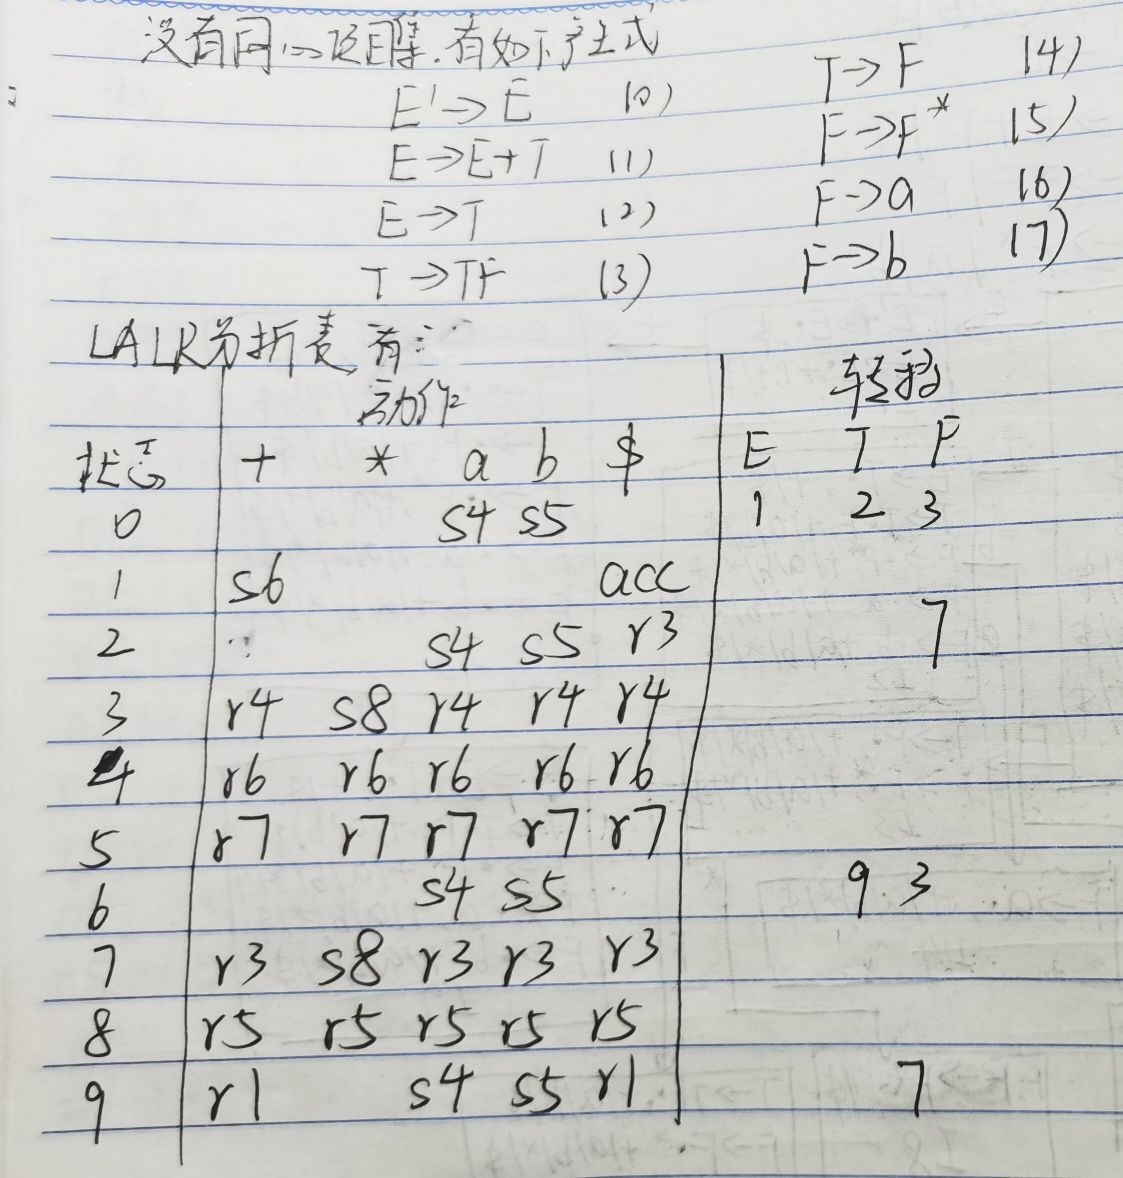 没有同心项目集.有如下产生式
E'→E (0)
E→E+T (1)
E→T (2)
T→TF (3)
T→F (4)
F→F* (5)
F→a (6)
F→b (7)
LALR分析表有:
动作 转移
状态 + * a b $ E T F
0 s4 s5 1 2 3
1 s6 acc
2 s4 s5 r3 7
3 r4 s8 r4 r4 r4
4 r6 r6 r6 r6 r6
5 r7 r7 r7 r7 r7
6 s4 s5 9 3
7 r3 s8 r3 r3 r3
8 r5 r5 r5 r5 r5
9 r1 s4 s5 r1 7